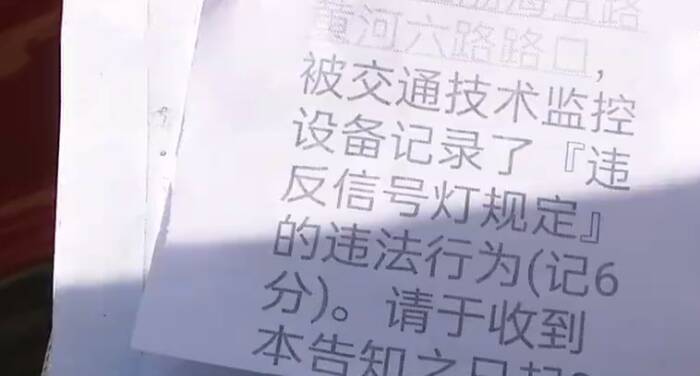 渤海五路
黄河六路路口，
被交通技术监控
设备记录了『违
反信号灯规定』
的违法行为(记6
分)。请于收到
本告知之日起